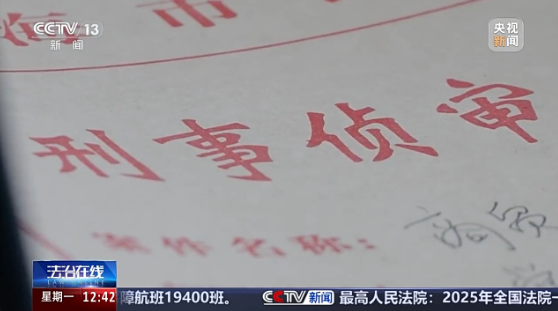 CCTV 13
新闻
央视
新闻
海市
刑事侦审
案件名称：
法治在线
星期一 12:42 障航班19400班。 CCTV 新闻 最高人民法院：2025年全国法院一